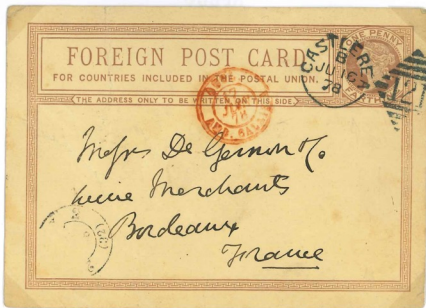 FOREIGN POST CARD
FOR COUNTRIES INCLUDED IN THE POSTAL UNION.
(THE ADDRESS ONLY TO BE WRITTEN ON THIS SIDE)
ONE PENNY
B
JU 16
78
Messrs De Gernon & Co
Wine Merchants
Bordeaux
France